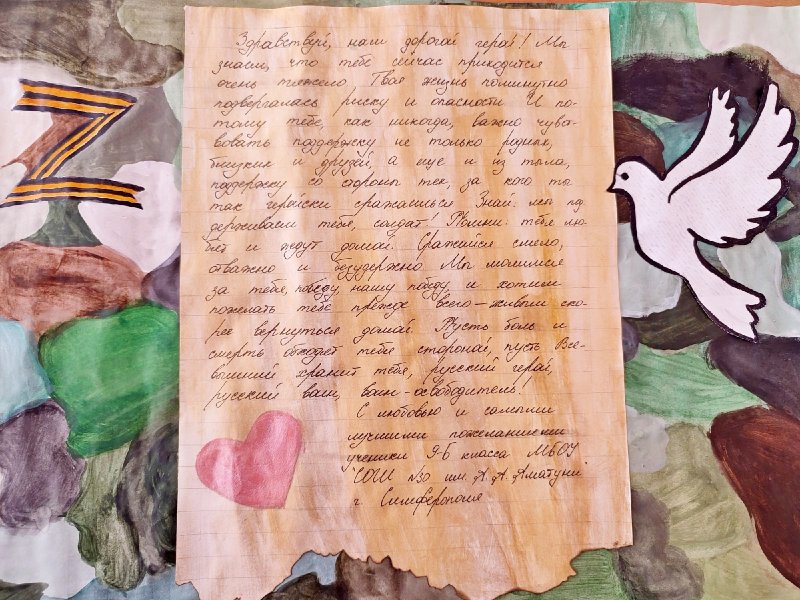 Z
Здравствуй, наш дорогой герой! Мы
знаем, что тебе сейчас приходится
очень тяжело. Твоя жизнь поминутно
подвергалась риску и опасности. И по-
тому тебе, как никогда, важно чувст-
вовать поддержку не только родных,
близких и друзей, а еще и из тыла,
поддержку со стороны тех, за кого ты
так геройски сражаешься. Знай: мы по
держиваем тебя, солдат! Помни: тебя лю-
бят и ждут домой. Сражайся смело,
отважно и безудержно. Мы молимся
за тебя, победу, нашу победу, и хотим
пожелать тебе прежде всего – живым ско-
рее вернуться домой. Пусть боль и
смерть обходят тебя стороной, пусть Все-
вышний хранит тебя, русский герой,
русский воин, воин-освободитель!
С любовью и самыми
лучшими пожеланиями
ученики 9-Б класса МБОУ
"СОШ №30 им. А. А. Аматуни"
г. Симферополя